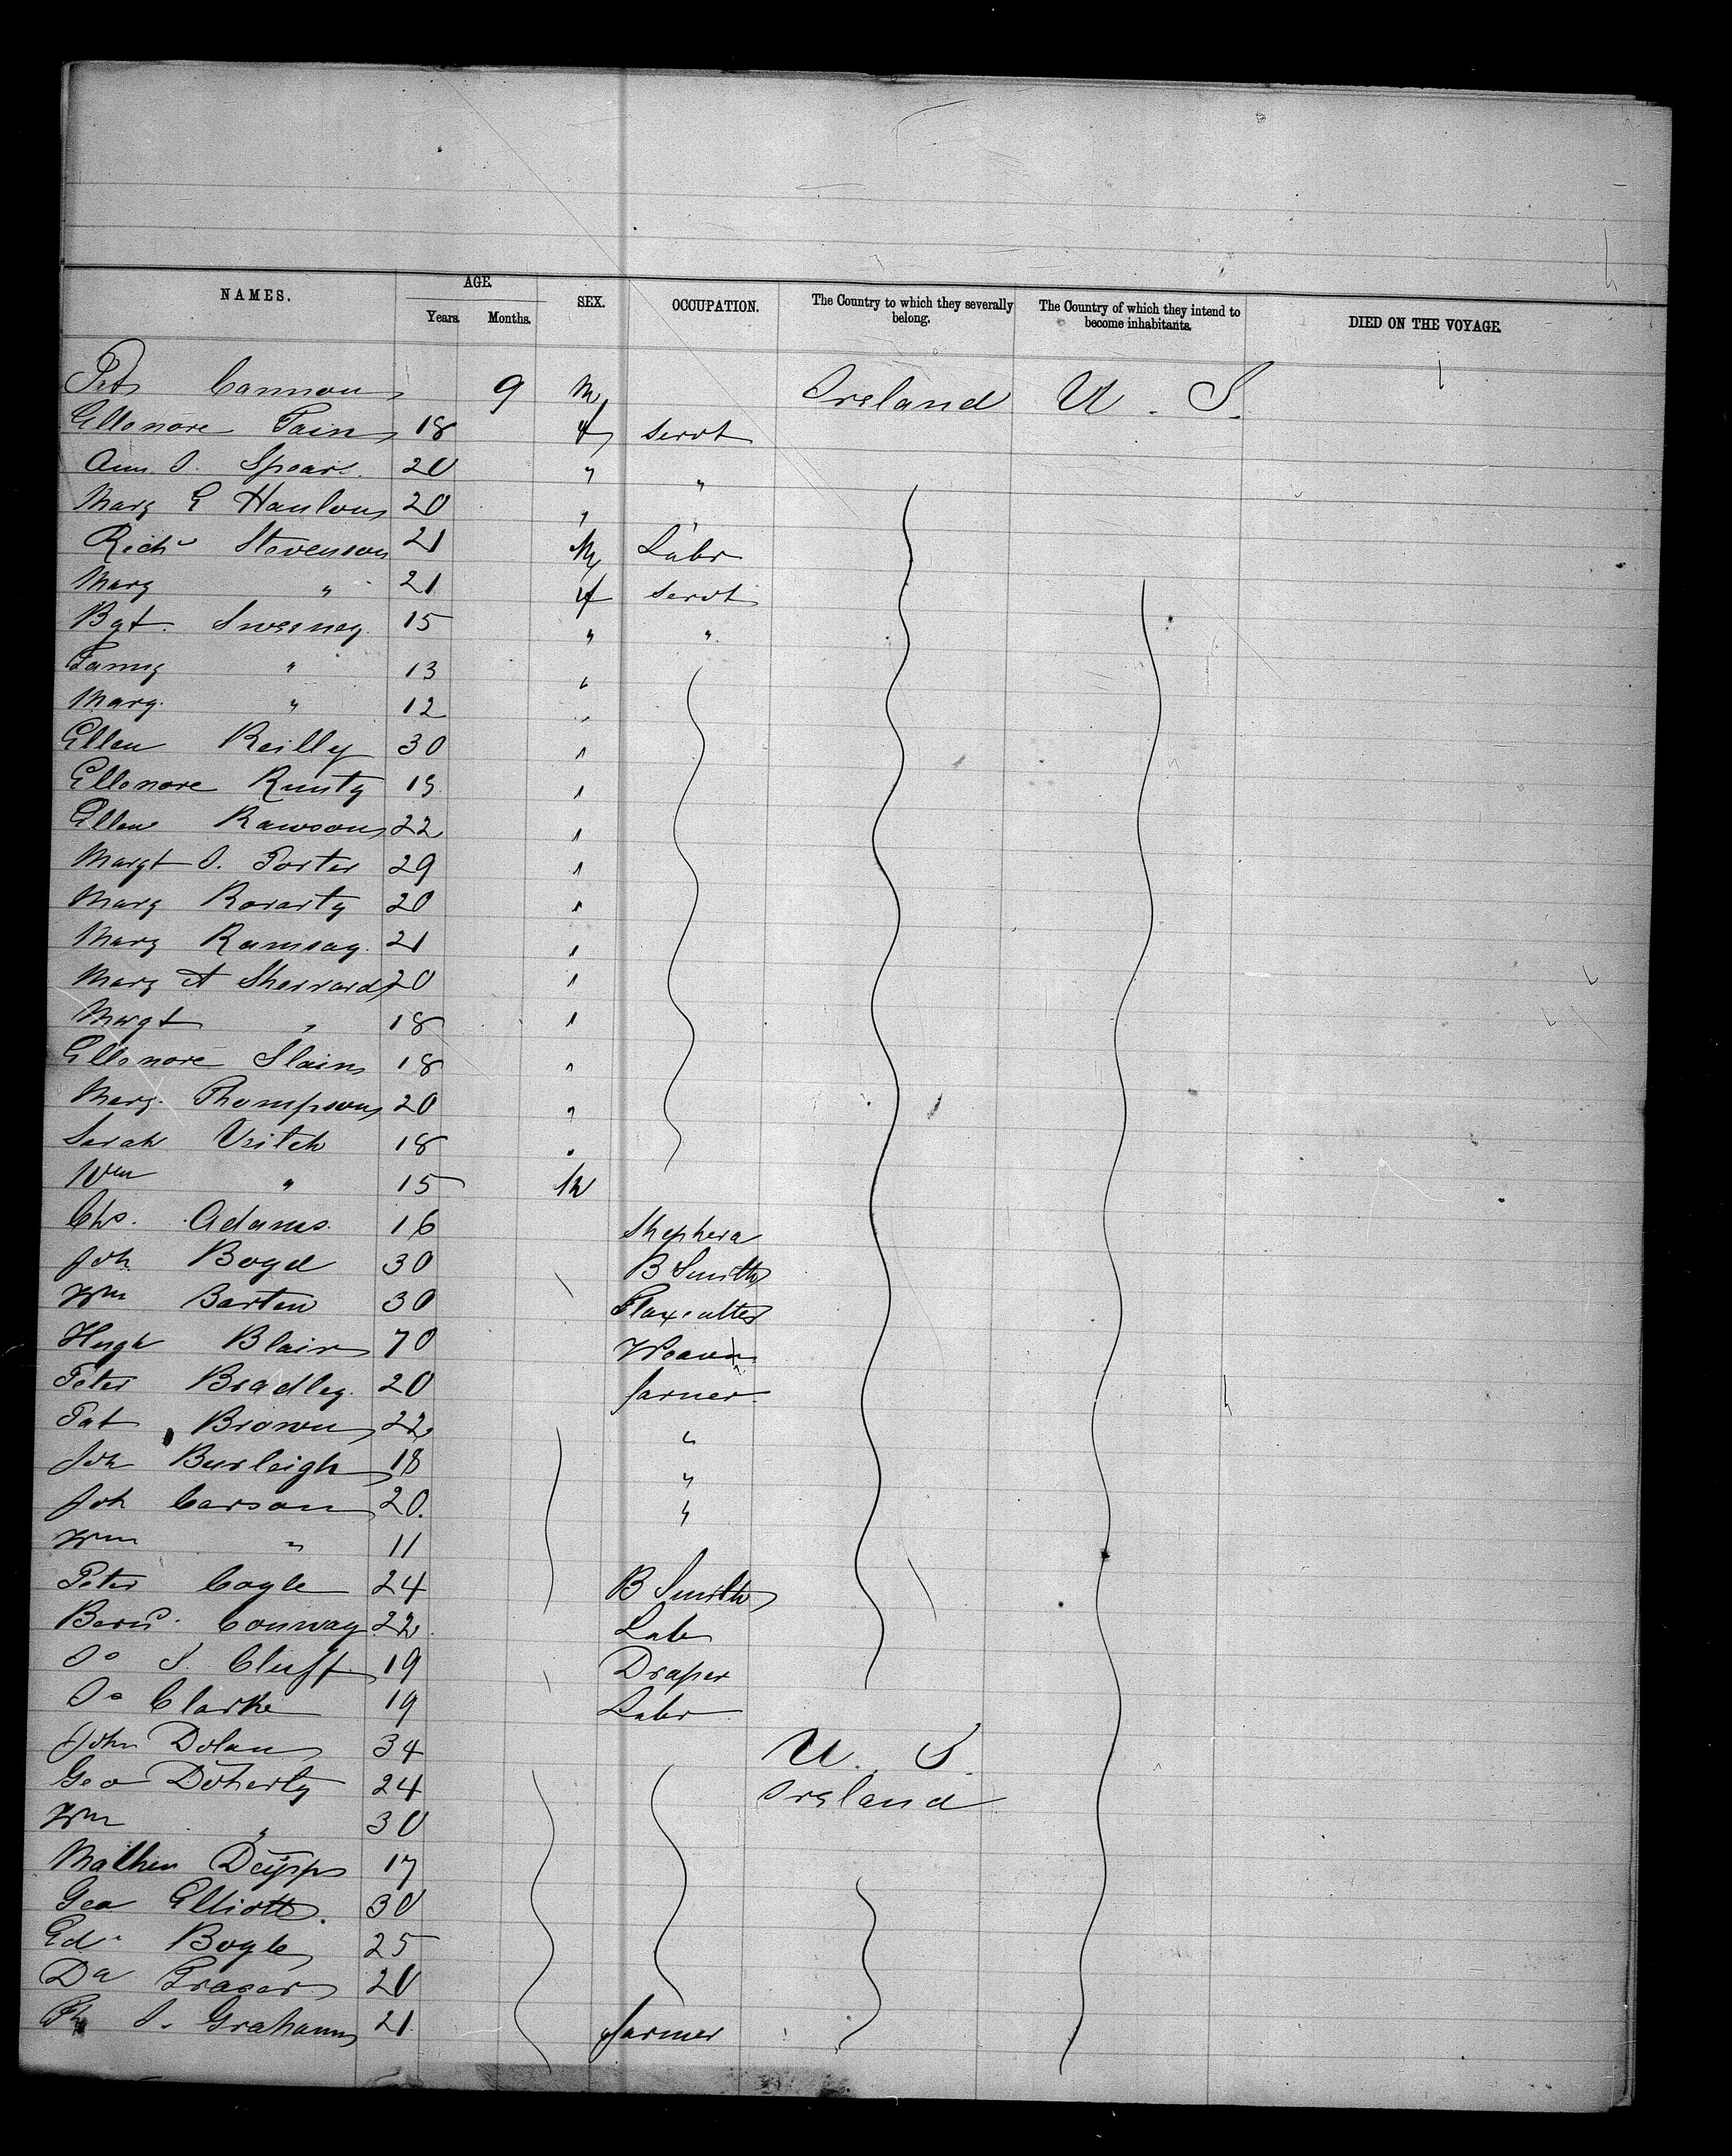 NAMES. AGE. Years. Months. SEX. OCCUPATION. The Country to which they severally belong. The Country of which they intend to become inhabitants. DIED ON THE VOYAGE.
Cannon 9 M Ireland U. S.
Ellonore 18 f servt
Ann J. Spear 20 " "
Mary E Hanlon 20 "
Richd Stevenson 21 M Labr
Mary " 21 f servt
Bgt. Sweeney 15 " "
Fanny " 13 "
Mary " 12 "
Ellen Reilly 30 "
Ellonore 19 "
Ellen Rawson 22 "
Margt J. Porter 29 "
Mary Rorarty 20 "
Mary Ramsay. 21 "
Mary A Sherrard 20 "
Margt " 18 "
Ellonore Slain 18 "
Mary Thompson 20 "
Sarah Veitch 18 "
Wm " 15 M
Chs. Adams. 16 Shepherd
Joh Boyd 30 B Smith
Wm Barten 30
Hugh Blair 70 Weaver
Peter Bradley. 20 farmer
Pat Brown 22 "
Joh Burleigh 18 "
Joh Carson 20. "
Wm " 11
Peter Coyle 24 B Smith
Bernd. Conway 22 Lab
Jo S. Cluff 19 Draper
Jo Clarke 19 Labr
John Dolan 34 U. S.
Geo Doherty 24 Ireland
Wm " 30
Mathew 17
Geo Elliott. 30
Ed. Bogle 25
Da Fraser 20
J. Graham 21 farmer